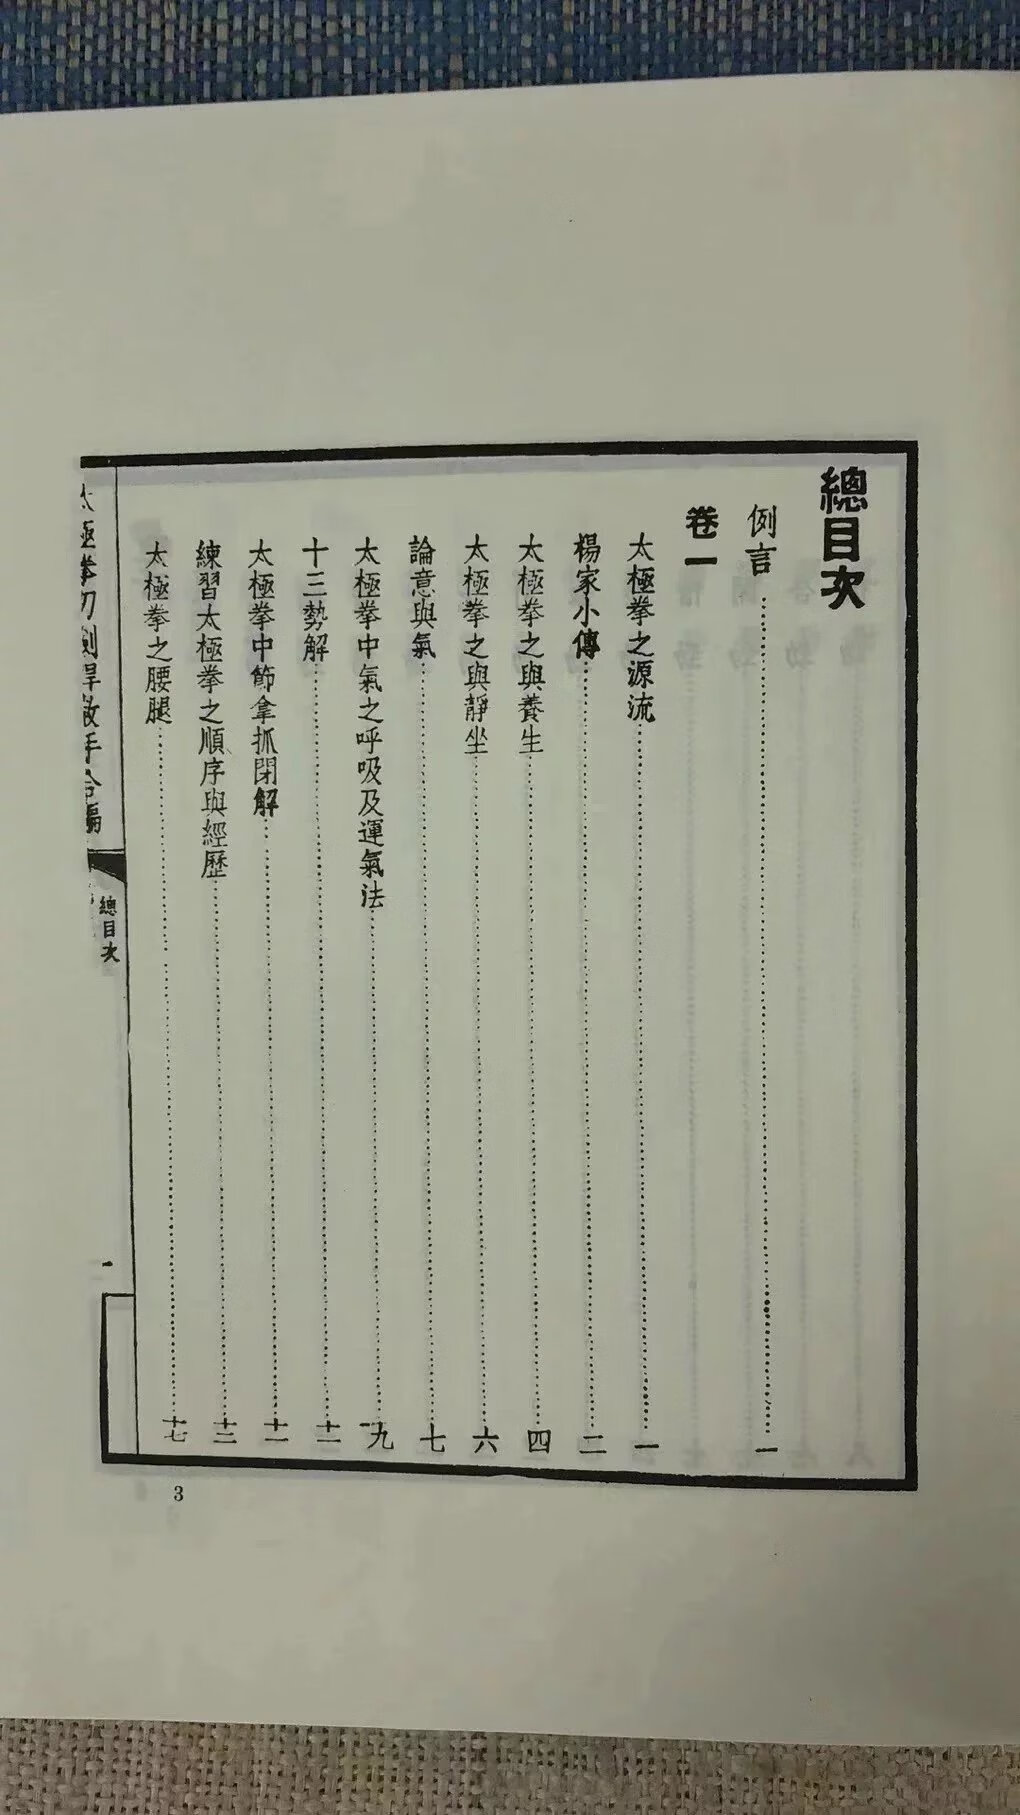 總目次
例言……一
卷一
太極拳之源流……一
楊家小傳……二
太極拳之與養生……四
太極拳之與靜坐……六
論意與氣……七
太極拳中氣之呼吸及運氣法……九
十三勢解……十二
太極拳中節拿抓閉解……十二
練習太極拳之順序與經歷……十三
太極拳之腰腿……十七
太極拳刀劍桿散手合編
總目次
一
3